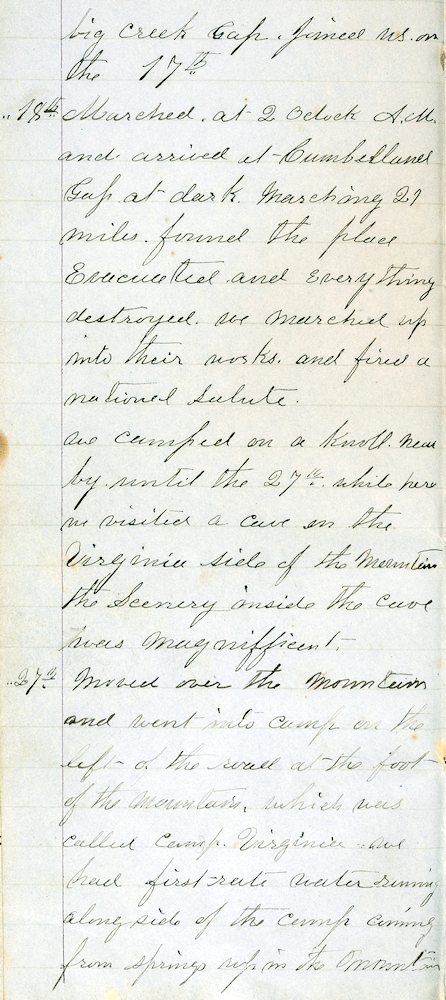 big creek Gap. joined us. on
the 17th
" 18th Marched. at 2 Oclock A.M.
and arrived at Cumbelland
Gap at dark. Marching 21
miles. found the place
Evacuated and Everything
destroyed. we marched up
into their works. and fired a
national salute.
we camped on a knoll near
by until the 27th. while here
we visited a cave on the
Virginia side of the Mountain
the Scenery inside the cave
was magnifficent.
" 27th Moved over the mountain
and went into camp on the
left of the road at the foot
of the Mountain. which was
called Camp. Virginia. we
had first-rate water running
along side of the camp coming
from springs up in the Mountain